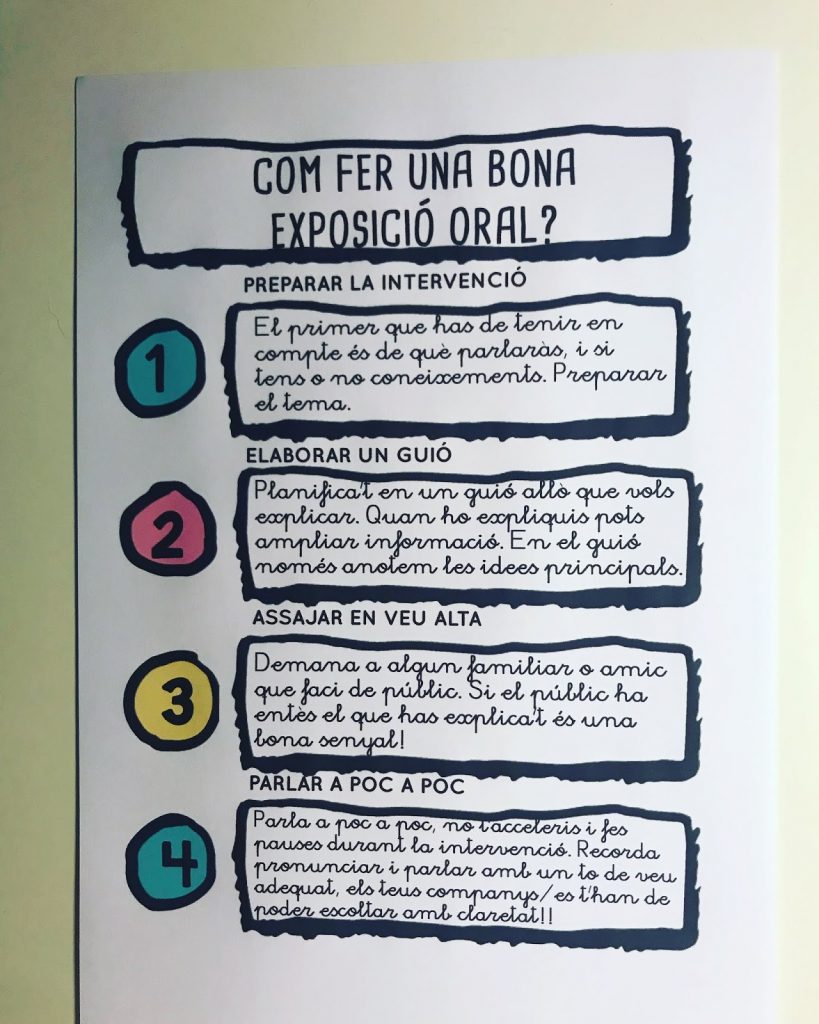 COM FER UNA BONA
EXPOSICIÓ ORAL?
PREPARAR LA INTERVENCIÓ
1
El primer que has de tenir en
compte és de què parlaràs, i si
tens o no coneixements. Preparar
el tema.
ELABORAR UN GUIÓ
2
Planifica't en un guió allò que vols
explicar. Quan ho expliquis pots
ampliar informació. En el guió
només anotem les idees principals.
ASSAJAR EN VEU ALTA
3
Demana a algun familiar o amic
que faci de públic. Si el públic ha
entès el que has explica't és una
bona senyal!
PARLAR A POC A POC
4
Parla a poc a poc, no t'acceleris i fes
pauses durant la intervenció. Recorda
pronunciar i parlar amb un to de veu
adequat, els teus companys/es t'han de
poder escoltar amb claretat!!